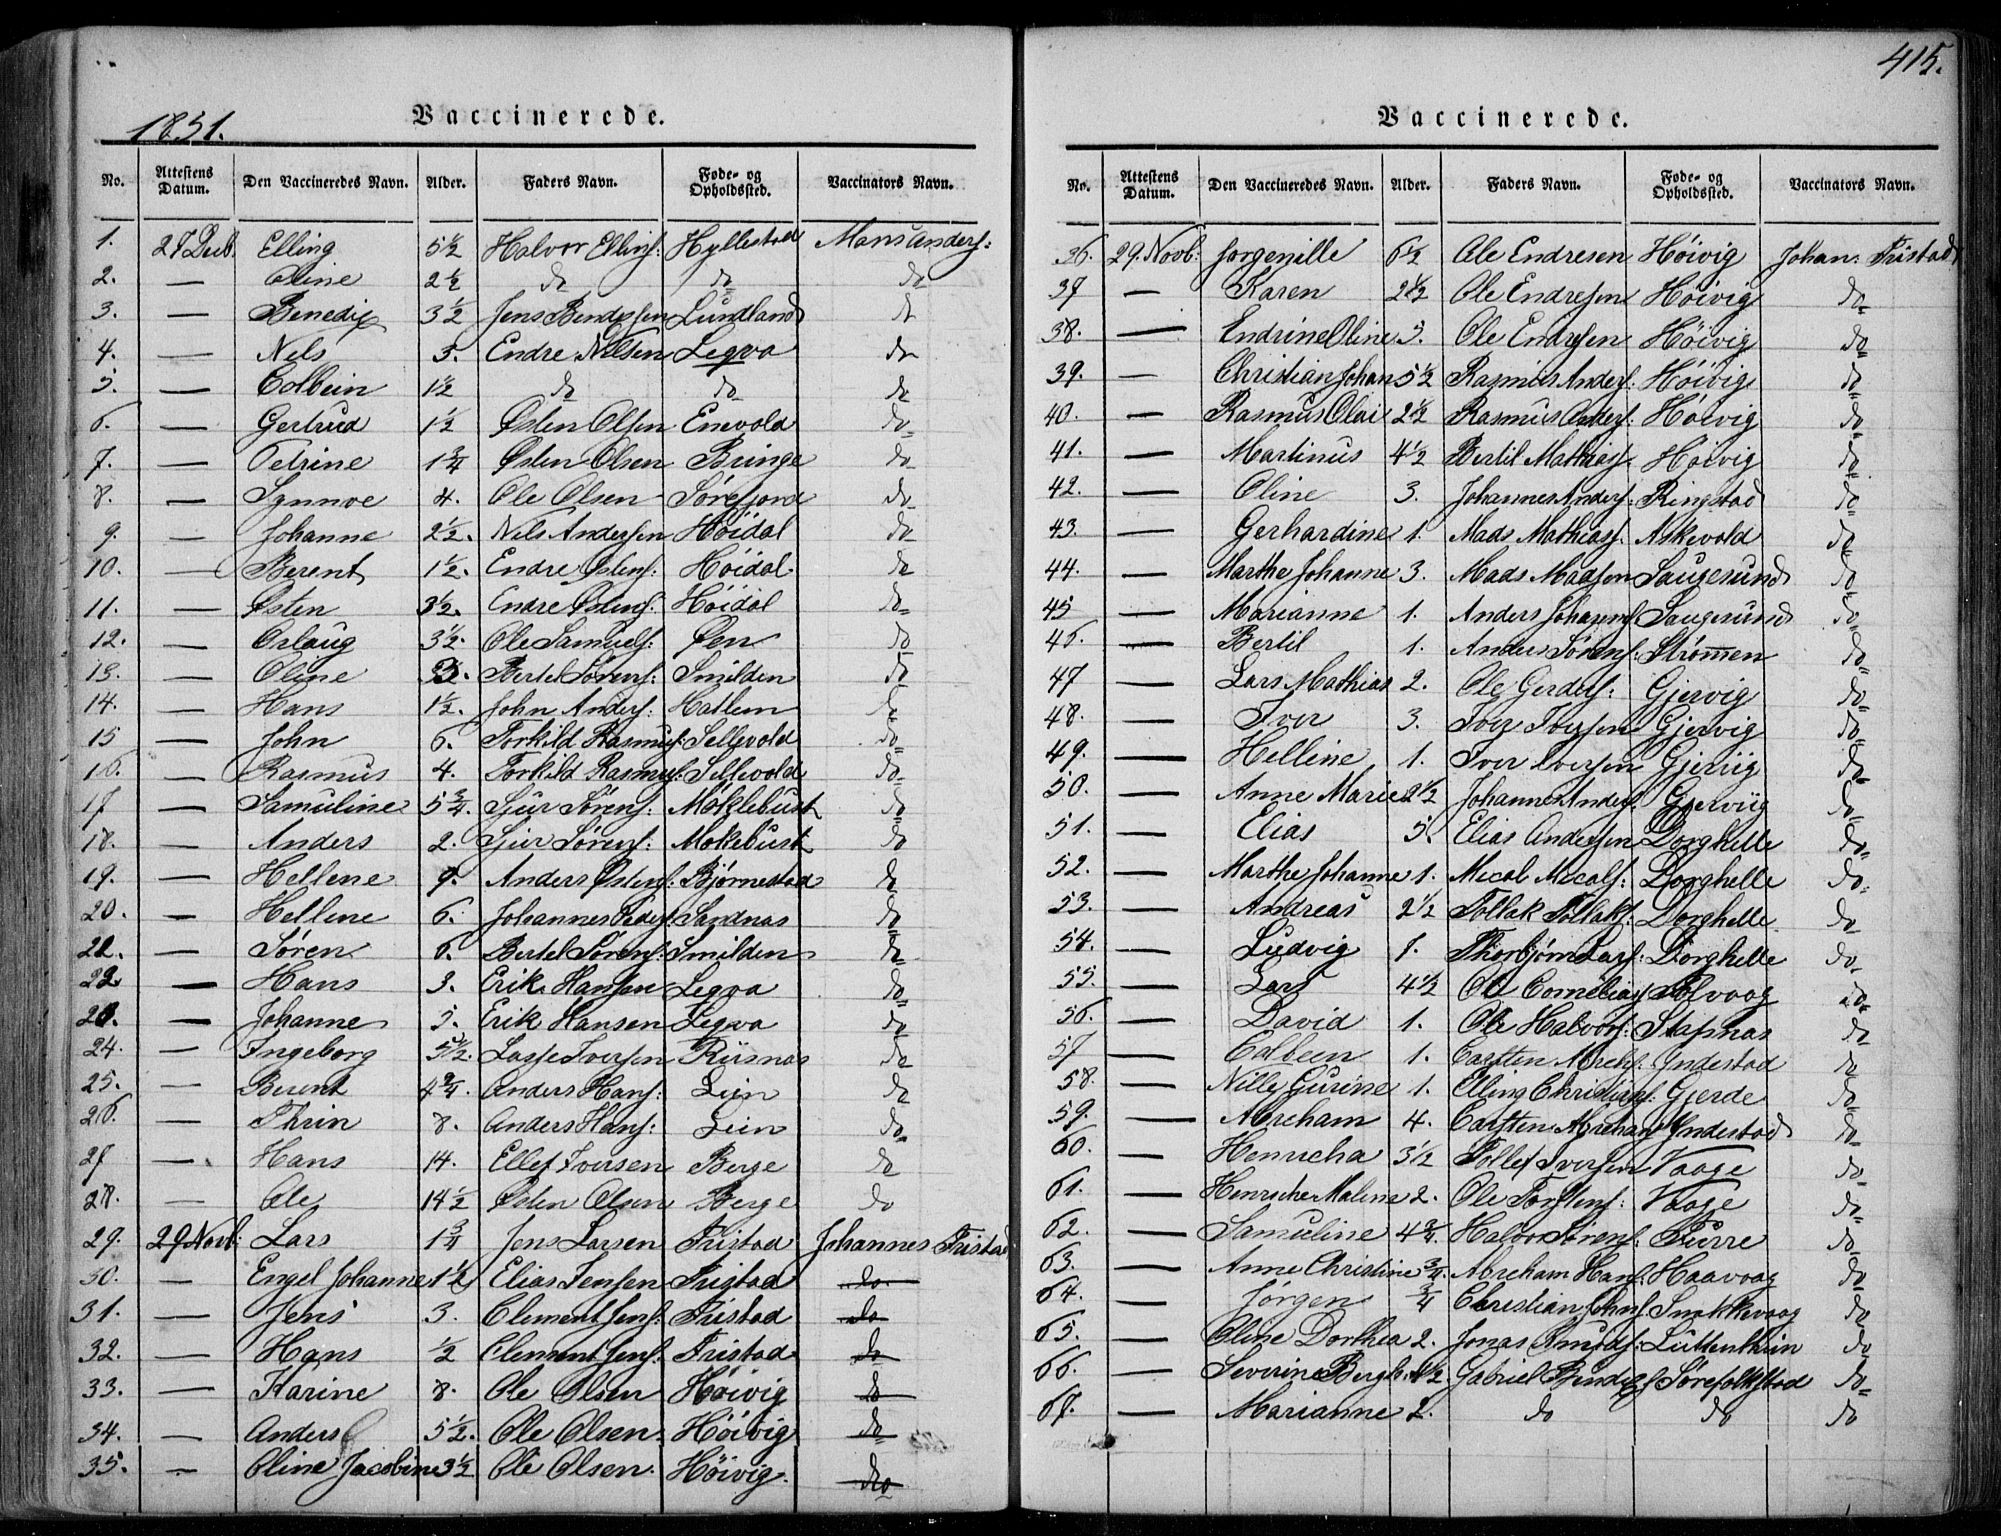 1851.
Vaccinerede.
No. Attestens Datum. Den Vaccineredes Navn. Alder. Faders Navn. Føde- og Opholdssted. Vaccinators Navn.
1. Elling 5½ Halvor Ellings: Hyllestad Mons Anders:
2. — Oline 2½ do do do
3. — Benedix 3½ Jens Lundland do
4. — Nels 3. Endre Nilsen Legva do
5. — Colbein 1½ do do do
6. — Gertrud 1½ Østen Olsen Enevold do
7. — Petrine 1¾ Østen Olsen Bringe do
8. — Synnve 4. Ole Olsen Sørefjord do
9. — Johanne 2½. Nils Andersen Höidal do
10. — Berent 1½. Endre Østens: Höidal. do
11. — Østen 3½. Endre Østens: Höidal do
12. — Orlaug 3½. Ole Samuels: Øen do
13. — Oline Bertel Sørens: Smilden do
14. — Hans 1½. John Anders: Hatlem do
15 — John 6. Torkild Rasmus: Sellevold do
16. — Rasmus 4. Torkild Rasmus: Sellevold do
17 — Samuline 5¾. Sjur Sørens: Moklebust do
18. — Anders 2. Sjur Sørens: Mokebust do
19. — Hellene 9. Anders Østens: Bjørnestad do
20. — Hellene 6. Johannes Peders: Sandnas do
21. — Søren 6. Bertel Sørens: Smilden do
22. — Hans 3. Erik Hansen Legva do
23. — Johanne 5. Erik Hansen Legva do
24. — Ingeborg 5½. Lasse Iversen Riisnas do
25. — Berent 4¾. Anders Hans: Lien do
26. — Thrin 8. Anders Hans: Lien do
27 — Hans 14. Ellef Iversen Berge do
28. — Ole 14½ Østen Olsen Berge do
29. 29 Novb: Lars 1¾ Jens Larsen Tristad Johannes Tristad
30. — Engel Johanne 1½ Elias Jensen Tristad do
31. — Jens 3. Clement Jens: Tristad do
32. — Hans ½ Clement Jens: Tristad do
33. — Karine 8. Ole Olsen Höivig do
34. — Anders 5½. Ole Olsen Höivig do
35. — Oline Jacobine 3½ Ole Olsen. Höivig. do
415.
Vaccinerede.
No. Attestens Datum. Den Vaccineredes Navn. Alder. Faders Navn. Føde- og Opholdssted. Vaccinators Navn.
36. 29. Novb: Jorgenille 6½ Ole Endresen Höivig Johan: Tristad
37 — Karen 2½ Ole Endresen Höivig do
38. — Endrine Oline 3. Ole Endresen Höivig do
39. — Christian Johan 5½ Rasmus Anders: Höivig do
40. — Rasmus Olai 2½ Rasmus Anders: Höivig do
41. — Martinus 4½ Bertil Mathias: Höivig do
42. — Oline 3. Johannes Anders: Ringstad do
43. — Gerhardine 1. Mads Mathias: Askevold do
44. — Marthe Johanne 3. Mads Madsen Saugesund do
45 — Marianne 1. Anders Johanns: Saugesund do
46. — Bertil 1. Anders Sørens: Strømen do
47 — Lars Mathias 2. Ole Gjervig do
48. — Iver 3. Iver Iversen Gjervig do
49. — Helline 1. Iver Iversen Gjervig do
50. — Anne Marie 2½ Johannes Anders: Gjerviig do
51. — Elias 5. Elias Andersen Dorghelle do
52. — Marthe Johanne 1. Mecal Mecals: Dorghelle do
53. — Andreas 2½ Tollak Tollaks: Dorghelle do
54. — Ludvig 1. Thorbjørn Lars: Dorghelle do
55. — Lars 4½ Ole Cornelias: Solvaag do
56. — David 1. Ole Halvors: Stafsnas do
57 — Colbeen 1. Carsten Abrehs: Yndestad do
58. — Nille Gurine 1. Elling Christians: Gjerde do
59. — Abreham 4. Carsten Abreham: Yndestad do
60. — Henricha 3½ Tollef Iversen Vaage do
61. — Henriche Malene 2. Ole Torstens: Vaage do
62. — Samuline 4¾. Halvor Sørens: Turre do
63. — Anne Christine ¾. Abreham Hans: Haavaag do
64. — Jørgen ¾ Christian Johns: Smokkevaag do
65. — Oline Dorthea 2. Jonas Knuds: Luttenthun do
66. — Severine Bergh. Gabriel Sørefolkstad do
67. — Marianne 2. do do do